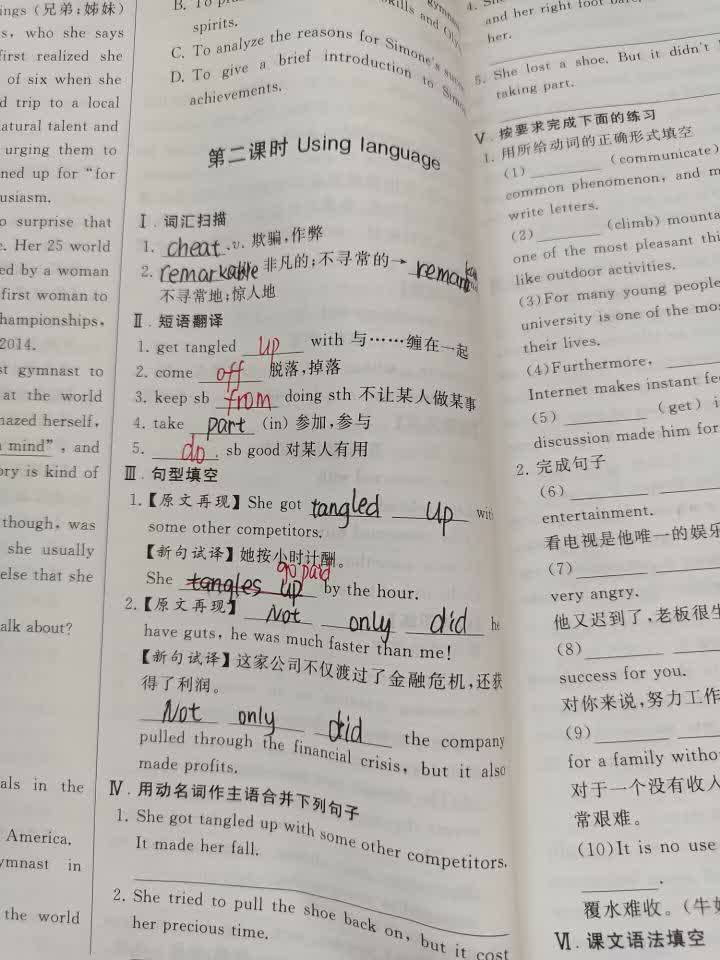 ings (兄弟;姊妹)
s, who she says
first realized she
of six when she
d trip to a local
atural talent and
urging them to
ned up for "for
usiasm.
o surprise that
e. Her 25 world
ed by a woman
first woman to
hampionships,
2014.
st gymnast to
at the world
mazed herself,
n mind", and
ory is kind of
though, was
she usually
else that she
alk about?
als in the
America.
ymnast in
the world
spirits.
C. To analyze the reasons for Simone's
D. To give a brief introduction to
achievements.
第二课时 Using language
Ⅰ.词汇扫描
1. cheat v. 欺骗,作弊
2. remarkable 非凡的;不寻常的→
不寻常地;惊人地
Ⅱ.短语翻译
1. get tangled up with 与……缠在一起
2. come off 脱落,掉落
3. keep sb from doing sth 不让某人做某事
4. take part (in) 参加,参与
5. do sb good 对某人有用
Ⅲ.句型填空
1.【原文再现】She got tangled up with
some other competitors.
【新句试译】她按小时计酬。
go paid
She tangles up by the hour.
2.【原文再现】 Not only did he
have guts, he was much faster than me!
【新句试译】这家公司不仅渡过了金融危机,还获
得了利润。
Not only did the company
pulled through the financial crisis, but it also
made profits.
Ⅳ.用动名词作主语合并下列句子
1. She got tangled up with some other competitors.
It made her fall.
2. She tried to pull the shoe back on, but it cost
her precious time.
and her right foot
her.
5. She lost a shoe. But it didn't
taking part.
Ⅴ.按要求完成下面的练习
1. 用所给动词的正确形式填空
(1) (communicate)
common phenomenon, and m
write letters.
(2) (climb) mounta
one of the most pleasant thi
like outdoor activities.
(3)For many young people
university is one of the mos
their lives.
(4)Furthermore,
Internet makes instant fe
(5) (get) i
discussion made him for
2. 完成句子
(6)
entertainment.
看电视是他唯一的娱乐
(7)
very angry.
他又迟到了,老板很生
(8)
success for you.
对你来说,努力工作
(9)
for a family witho
对于一个没有收入
常艰难。
(10)It is no use
覆水难收。(牛
Ⅵ.课文语法填空